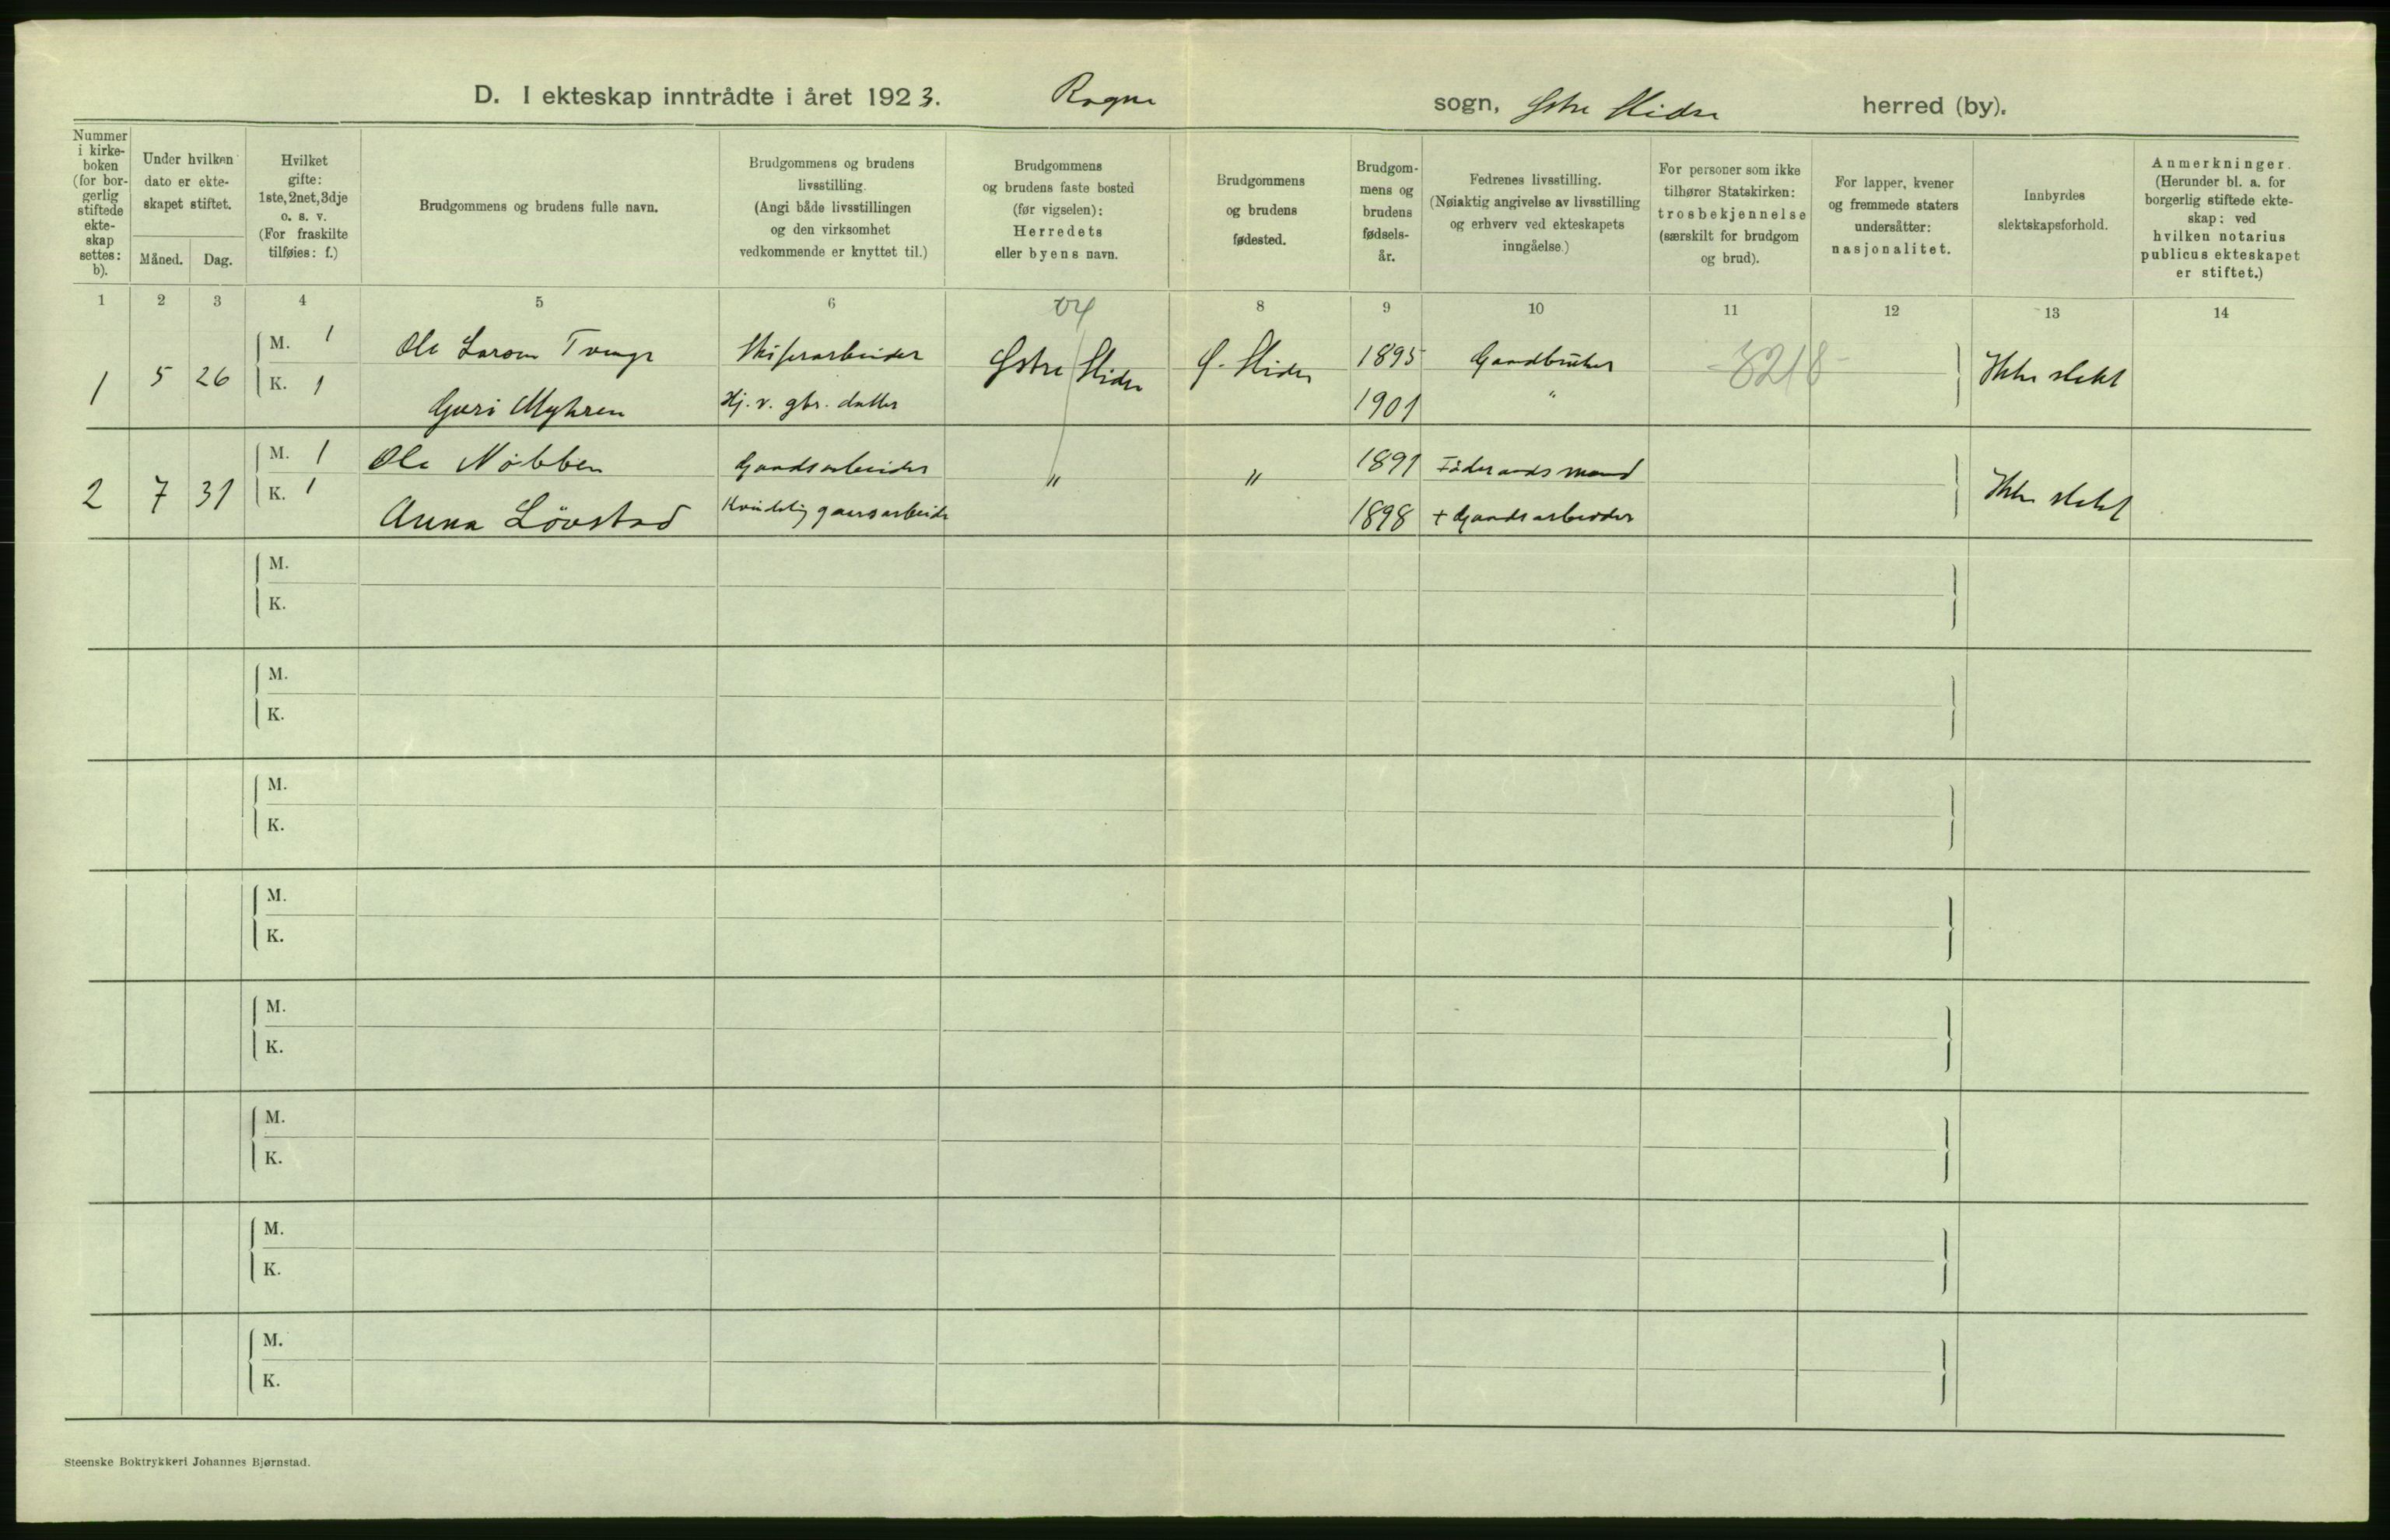 D. I ekteskap inntrådte i året 1923. Rogne sogn, Østre Slidre herred (by).
Nummer i kirke- boken (for bor- gerlig stiftede ekte- skap settes: b).
Under hvilken dato er ekte- skapet stiftet.
Måned. Dag.
Hvilket gifte: 1ste, 2net, 3dje o. s. v. (For fraskilte tilføies: f.)
Brudgommens og brudens fulle navn.
Brudgommens og brudens livsstilling. (Angi både livsstillingen og den virksomhet vedkommende er knyttet til.)
Brudgommens og brudens faste bosted (før vigselen): Herredets eller byens navn.
Brudgommens og brudens fødested.
Brudgom- mens og brudens fødsels- år.
Fedrenes livsstilling. (Nøiaktig angivelse av livsstilling og erhverv ved ekteskapets inngåelse.)
For personer som ikke tilhører Statskirken: trosbekjennelse (særskilt for brudgom og brud).
For lapper, kvener og fremmede staters undersåtter: nasjonalitet.
Innbyrdes slektskapsforhold.
Anmerkninger. (Herunder bl. a. for borgerlig stiftede ekte- skap: ved hvilken notarius publicus ekteskapet er stiftet.)
1 2 3 4 5 6 8 9 10 11 12 13 14
1 5 26 M. 1 Ole Larsen Skiferarbeider Østre Slidre Ø. Slidre 1895 Gaardbruker Ikke slekt
K. 1 Guri Myhren Hj. v. gbr. datter 1901 "
2 7 31 M. 1 Ole Nöbben Gaardsarbeider " " 1891 Föderaadsmand Ikke slekt
K. 1 Anna Lövstad Kvindelig gaardsarbeider 1898 + Gaardsarbeider
M.
K.
M.
K.
M.
K.
M.
K.
M.
K.
M.
K.
M.
K.
M.
K.
Steenske Boktrykkeri Johannes Bjørnstad.